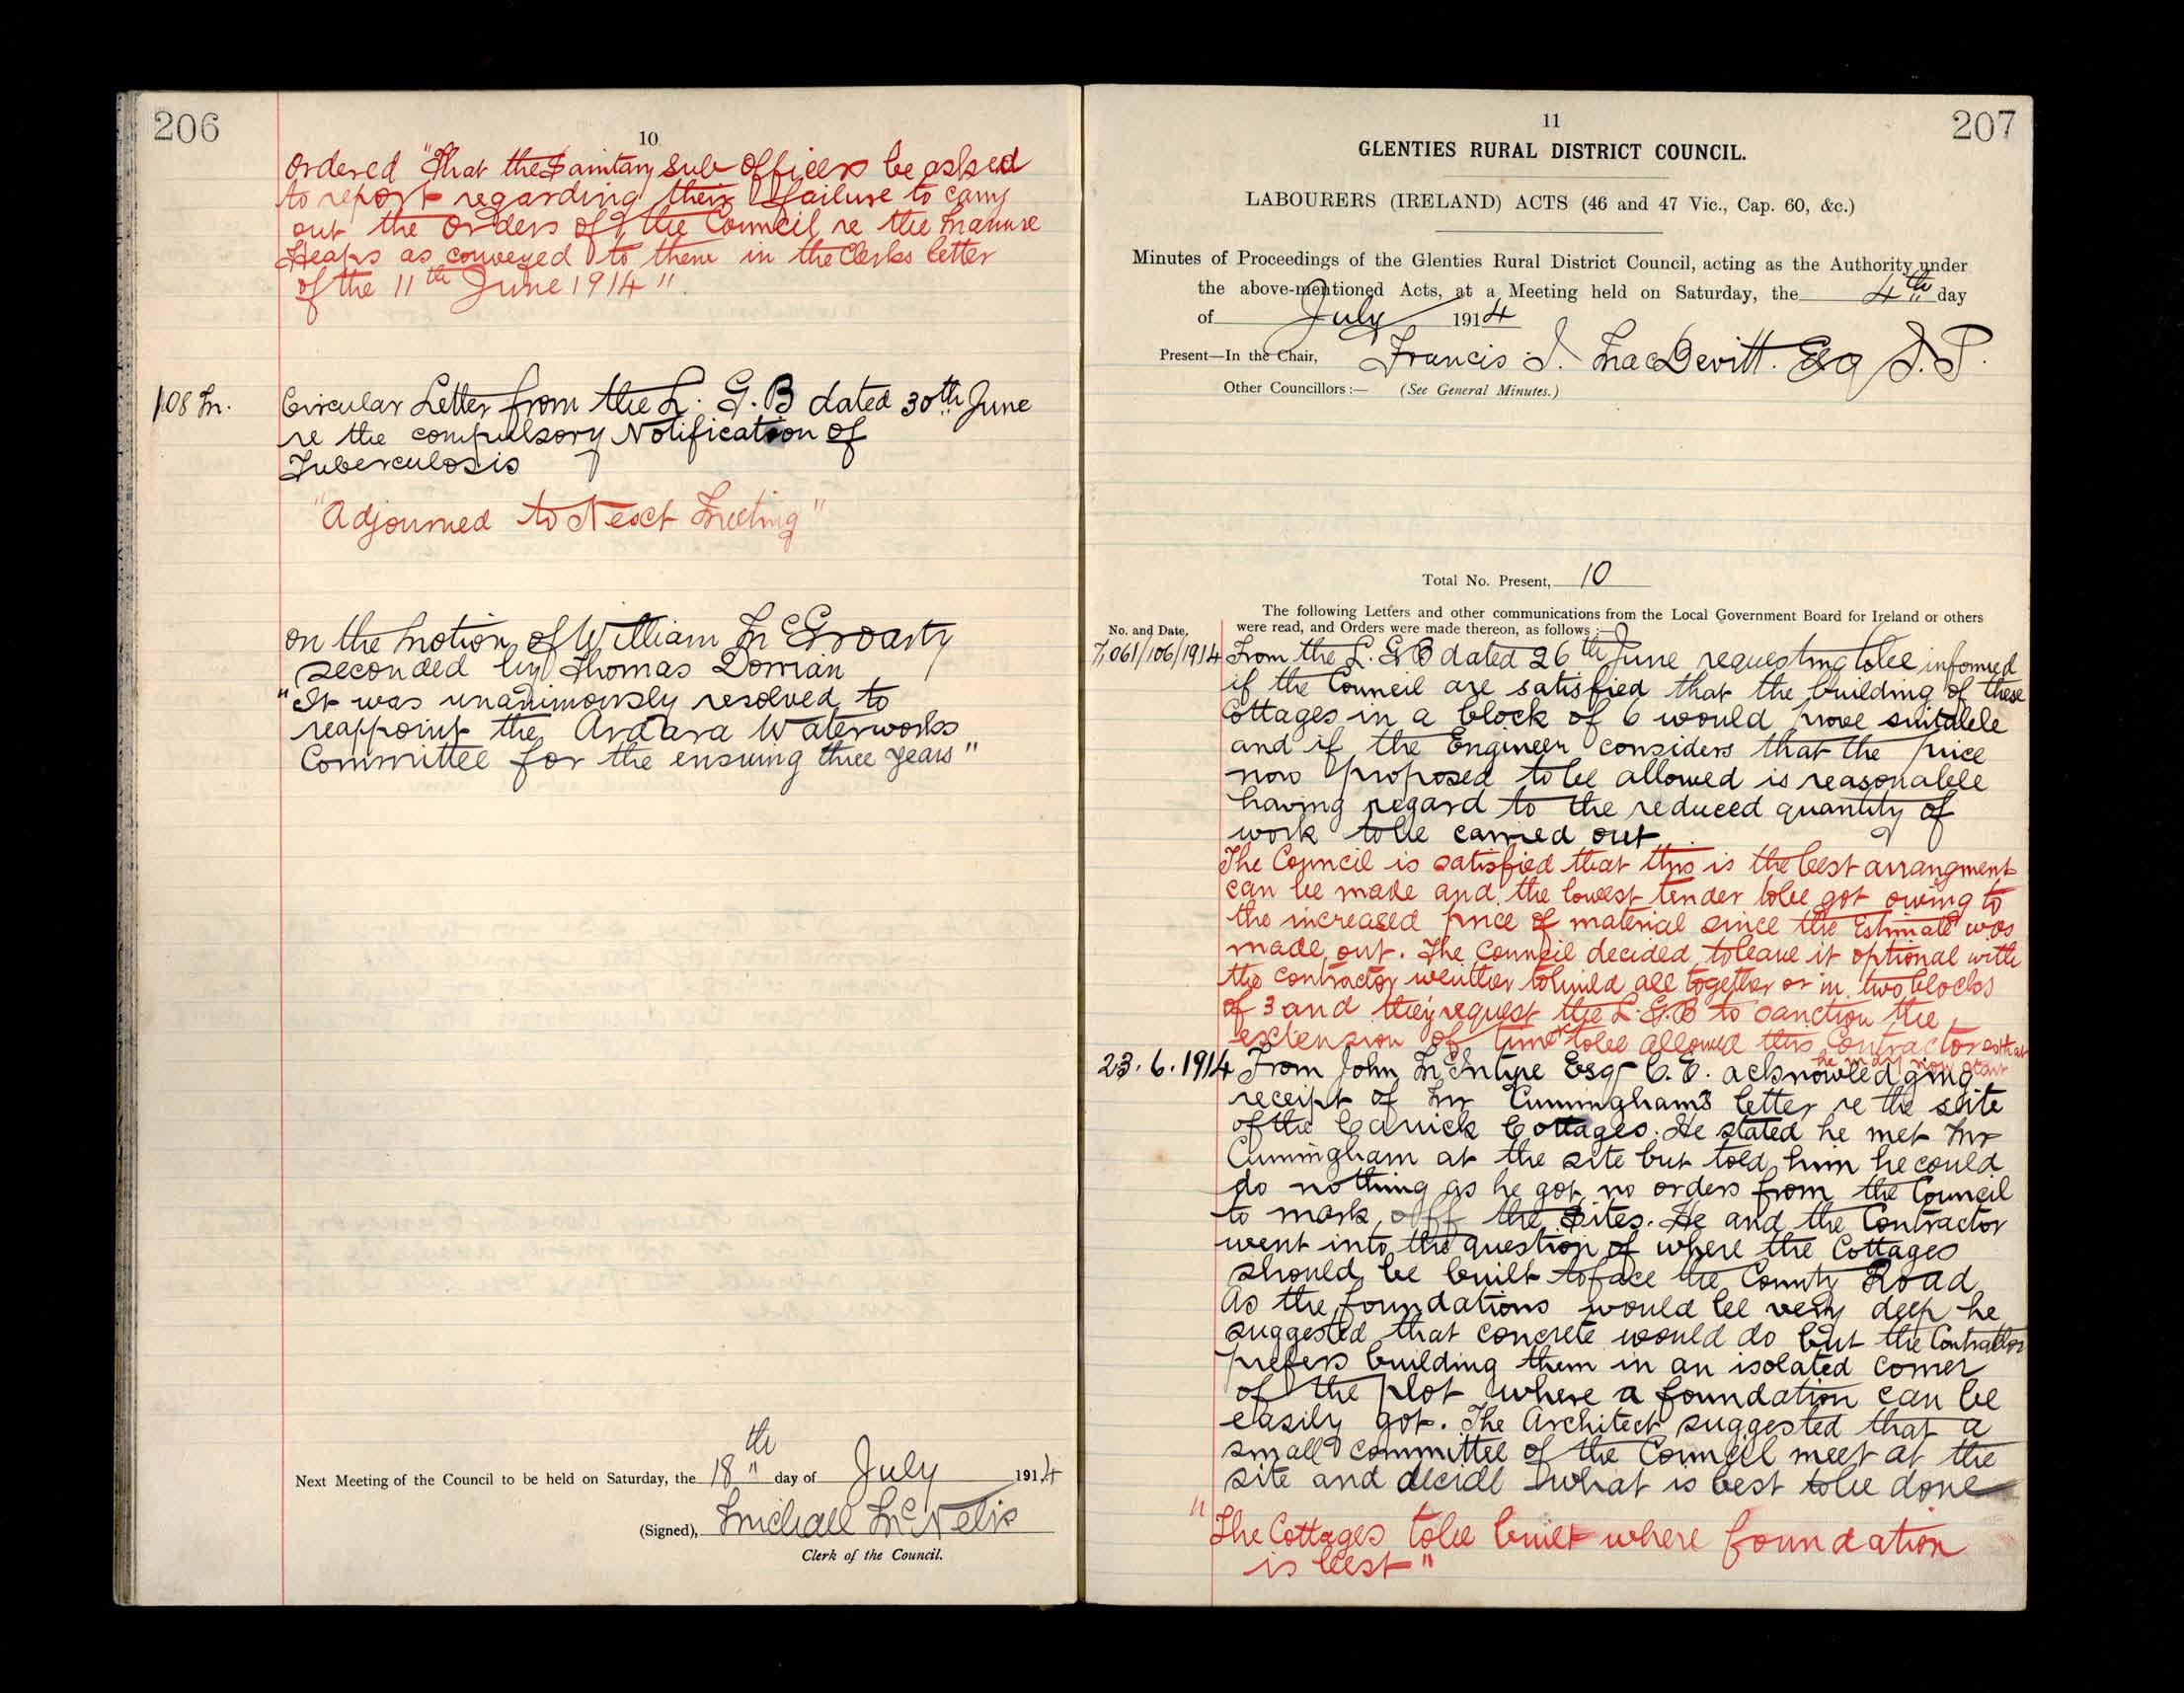 206
10
Ordered "That the Sanitary Sub Officers be asked
to report regarding their failure to carry
out the Orders of the Council re the Manure
Heaps as conveyed to them in the Clerks letter
of the 11th June 1914".
108 M. Circular Letter from the L. G. B dated 30th June
re the compulsory Notification of
Tuberculosis
"Adjourned to Next Meeting"
On the Motion of William McGroarty
seconded by Thomas Dorrian
"It was unanimously resolved to
reappoint the Ardara Waterworks
Committee for the ensuing three years"
Next Meeting of the Council to be held on Saturday, the 18th day of July 1914
(Signed), Michael McNelis
Clerk of the Council.
207
11
GLENTIES RURAL DISTRICT COUNCIL.
LABOURERS (IRELAND) ACTS (46 and 47 Vic., Cap. 60, &c.)
Minutes of Proceedings of the Glenties Rural District Council, acting as the Authority under
the above-mentioned Acts, at a Meeting held on Saturday, the 4th day
of July 1914
Present—In the Chair, Francis J. MacDevitt. Esq J.P.
Other Councillors:— (See General Minutes.)
Total No. Present, 10
The following Letters and other communications from the Local Government Board for Ireland or others
No. and Date. were read, and Orders were made thereon, as follows:—
7,061/106/1914 From the L. G B dated 26th June requesting to be informed
if the Council are satisfied that the building of these
Cottages in a block of 6 would prove suitable
and if the Engineer considers that the price
now proposed to be allowed is reasonable
having regard to the reduced quantity of
work to be carried out
The Council is satisfied that this is the best arrangment
can be made and the lowest tender to be got owing to
the increased price of material since the Estimate was
made out. The Council decided to leave it optional with
the contractor weither to build all together or in two blocks
of 3 and they request the L. G. B to sanction the
extension of time to be allowed this Contractor so that
he may now start
23.6.1914 From John McIntyre Esqr C. E. acknowledging
receipt of Mr Cunninghams letter re the site
of the Carrick Cottages. He stated he met Mr
Cunningham at the site but told him he could
do nothing as he got no orders from the Council
to mark off the sites. He and the Contractor
went into the question of where the Cottages
should be built to face the County Road
As the foundations would be very deep he
suggested that concrete would do but the Contractor
prefers building them in an isolated corner
of the plot where a foundation can be
easily got. The Architect suggested that a
small committee of the Council meet at the
site and decide what is best to be done
"The Cottages to be built where foundation
is best"